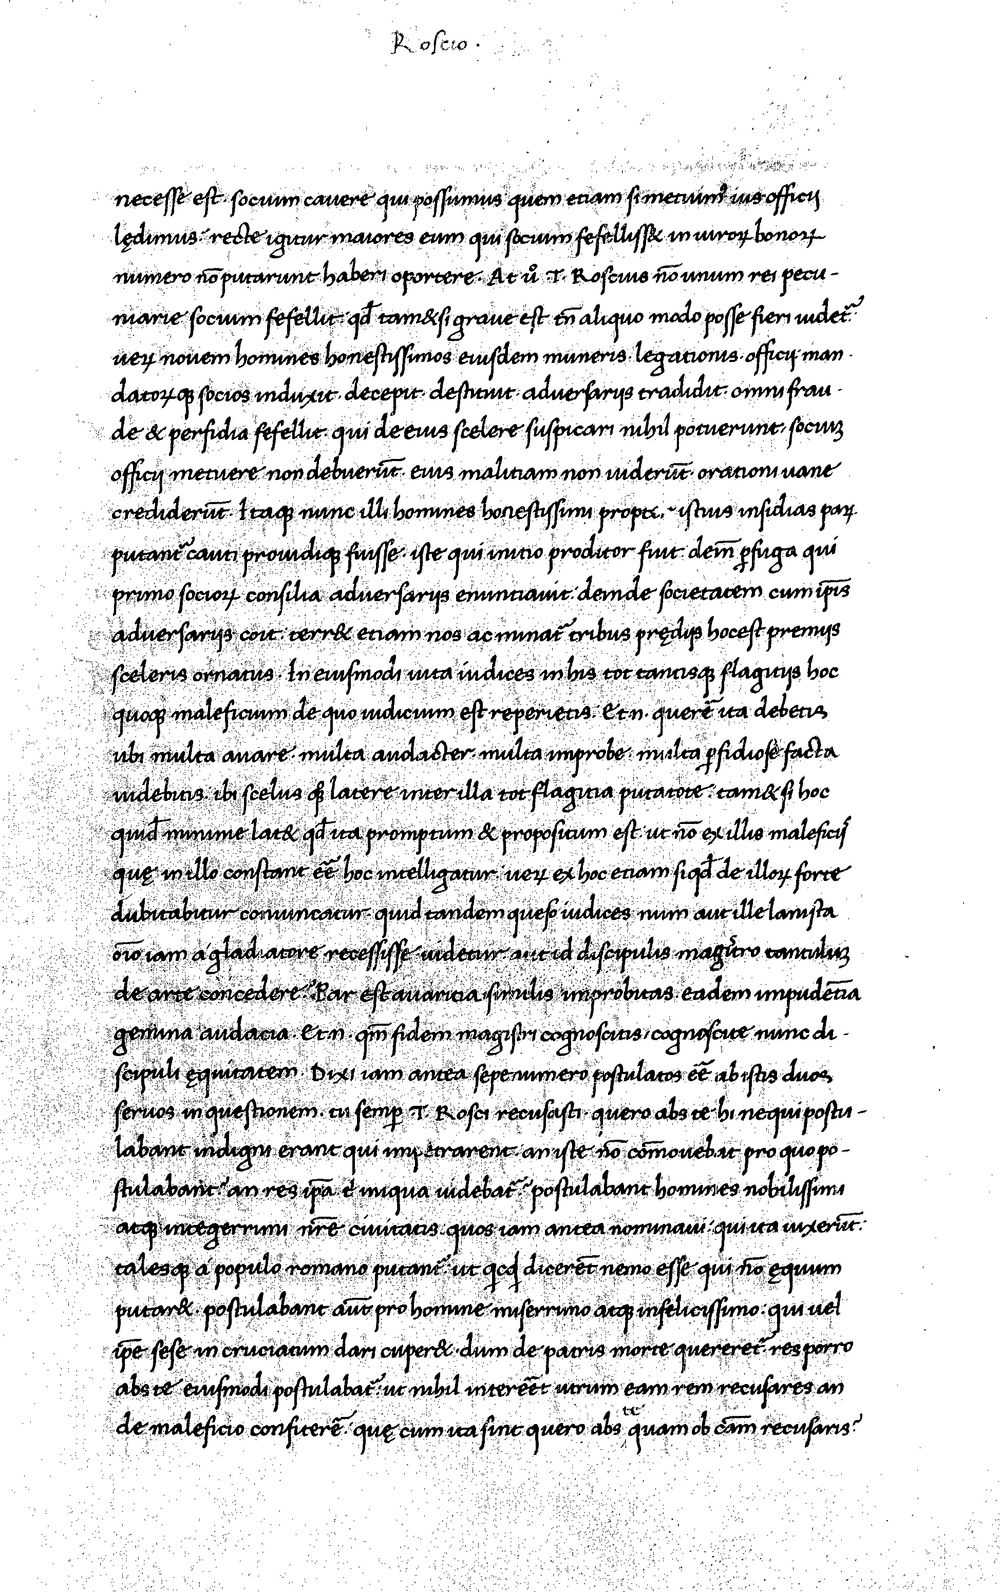 Roscio.
necesse est. socium cavere qui possumus quem etiam si metuimꝰ ius officij
lędimus. recte igitur maiores eum qui socium fefelliss& in uiroꝝ bonoꝝ
numero nō putarunt haberi oportere. At ů T. Roscius nō unum rei pecu-
niarie socium fefellit. qđ tam&si graue est tn̄ aliquo modo posse fieri uidet᷑.
ueꝝ novem homines honestissimos eiusdem muneris. legationis. officij. man-
datoꝝqꝫ socios induxit. decepit. destituit. adversarijs tradidit. omni frau-
de & perfidia fefellit. qui de eius scelere suspicari nihil potuerunt. sociuꝫ
officij metuere non debuerūt. eius malitiam non uiderūt. orationi uane
crediderūt. Itaqꝫ nunc illi homines honestissimi propt&. istius insidias paꝝ
putant᷑ cauti prouidiqꝫ fuisse. iste qui initio proditor fuit. dein̄ ꝑfuga qui
primo socioꝝ consilia adversarijs enuntiauit. deinde societatem cum ip̄is
adversarijs coit. terr& etiam nos ac minat᷑ tribus prędijs hoc est premijs
sceleris ornatus. In eiusmodi uita iudices in his tot tantisqꝫ flagitijs hoc
quoqꝫ maleficium de quo iudicium est reperietis. Et.n. querē ita debetis
ubi multa auare. multa audacter. multa improbe. multa ꝑfidiose facta
uidebitis. ibi scelus qꝫ latere inter illa tot flagitia putatote. tam&si hoc
quid̄ minime lat& qđ ita promptum & propositum est. ut nō ex illis maleficijs
quę in illo constant eē hoc intelligatur. ueꝝ ex hoc etiam siqđ de illoꝝ forte
dubitabitur conuincatur. quid tandem queso iudices num aut ille lanista
oīo iam a gladiatore recessisse uidetur. aut id discipulis magr̄o tantuluꝫ
de arte concedere. Par est avaritia similis improbitas. eadem impudētia
gemina audacia. Et.n. qm̄ fidem magistri cognoscitis. cognoscite nunc di-
scipuli ęquitatem. Dixi iam antea sepenumero postulatos eē ab istis duos
seruos in questionem. tu semꝑ T. Rosci recusasti. quero abs te hi ne qui postu-
labant indigni erant qui impetrarent. an iste nō com̄ouebat pro quo po-
stulabant. an res ip̄a t' iniqua uidebat᷑. postulabant homines nobilissimi
atqꝫ integerrimi nr̄e civitatis. quos iam antea nominaui. qui ita uixerūt.
talesqꝫ a populo romano putant᷑ ut qͥcqͥd dicerēt nemo esse qui nō ęquum
putar& postulabant aūt pro homine miserrimo atqꝫ infelicissimo. qui uel
ip̄e sese in cruciatum dari cuper& dum de patris morte quereret᷑. res porro
abs te eiusmodi postulabat᷑. ut nihil intereēt utrum eam rem recusares an
de maleficio confiterē. quę cum ita sint quero abs te quam ob cām recusaris.